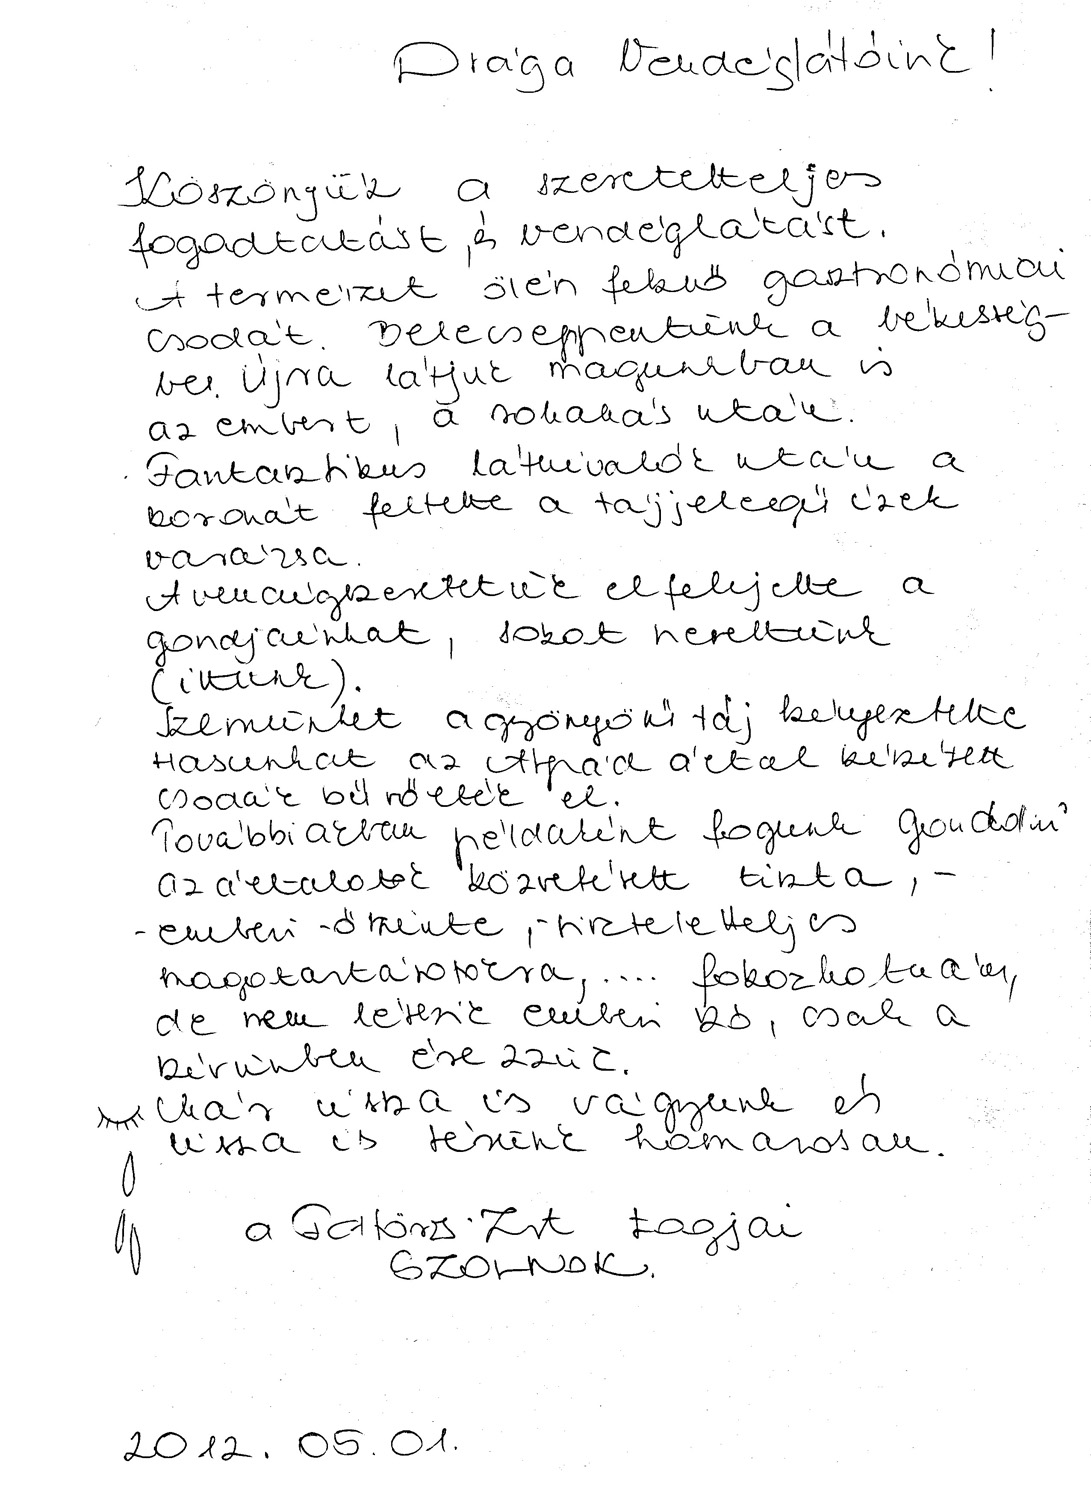 Drága Vendéglátóink!
Köszönjük a szeretetteljes
fogadtatást, és vendéglátást.
A természet ölén fekvő gasztronómiai
csodát. Belecseppentünk a békesség-
be. Újra látjuk magunkban is
az embert, a rohanás után.
Fantasztikus látnivalók után a
koronát feltette a tájjelegű ízek
varázsa.
A vendégszeretetük elfelejtette a
gondjainkat, sokat nevettünk
(ittunk).
Szemünket a gyönyörű táj kényeztette
Hasunkat az Árpád által készített
csodák bűvölték el.
Továbbiakban példaként fogunk gondolni
az általatok közvetített tiszta, -
- emberi - őszinte, - tiszteletteljes
magatartásotokra, .... fokozhatnám,
de nem létezik emberi szó, csak a
szívünkben érezzük.
Már vissza is vágyunk és
vissza is térünk hamarosan.
a Zrt tagjai
SZOLNOK.
2012. 05. 01.